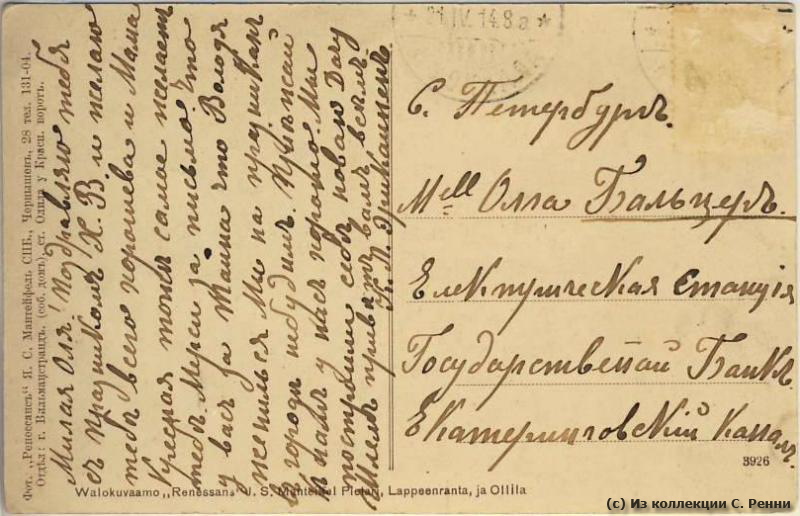 Фот. „Ренессансъ" Я. С. Мантейфель СПБ., Чернышовъ, 28 тел. 131-04.
Отдѣл: г. Вильманстрандъ, (соб. домъ), ст. Оллила у Красн. воротъ.
Милая Оля! Поздравляю тебя
съ праздникомъ Х. В. и желаю
тебѣ всего хорошева и Мама
Кресная тоже самое желаетъ
тебѣ. Мерси за письмо. Что
у васъ за тайна что Володя
женился. Мы на праздникахъ
в городѣ небудимъ. Пріѣжай
к намъ у насъ хорошо. Мы
построили себѣ новаю дачу
Шлемъ приветъ вамъ всѣмъ.
21.IV.14.8a
С. Петербургъ.
Mell Олга Бальцеръ.
Електрическая станція
Государственай Банкъ
Екатеринговский каналъ.
3926
Walokuvaamo „Renessans" J. S. Manteifel Pietari, Lappeenranta, ja Ollila
(c) Из коллекции С. Ренни